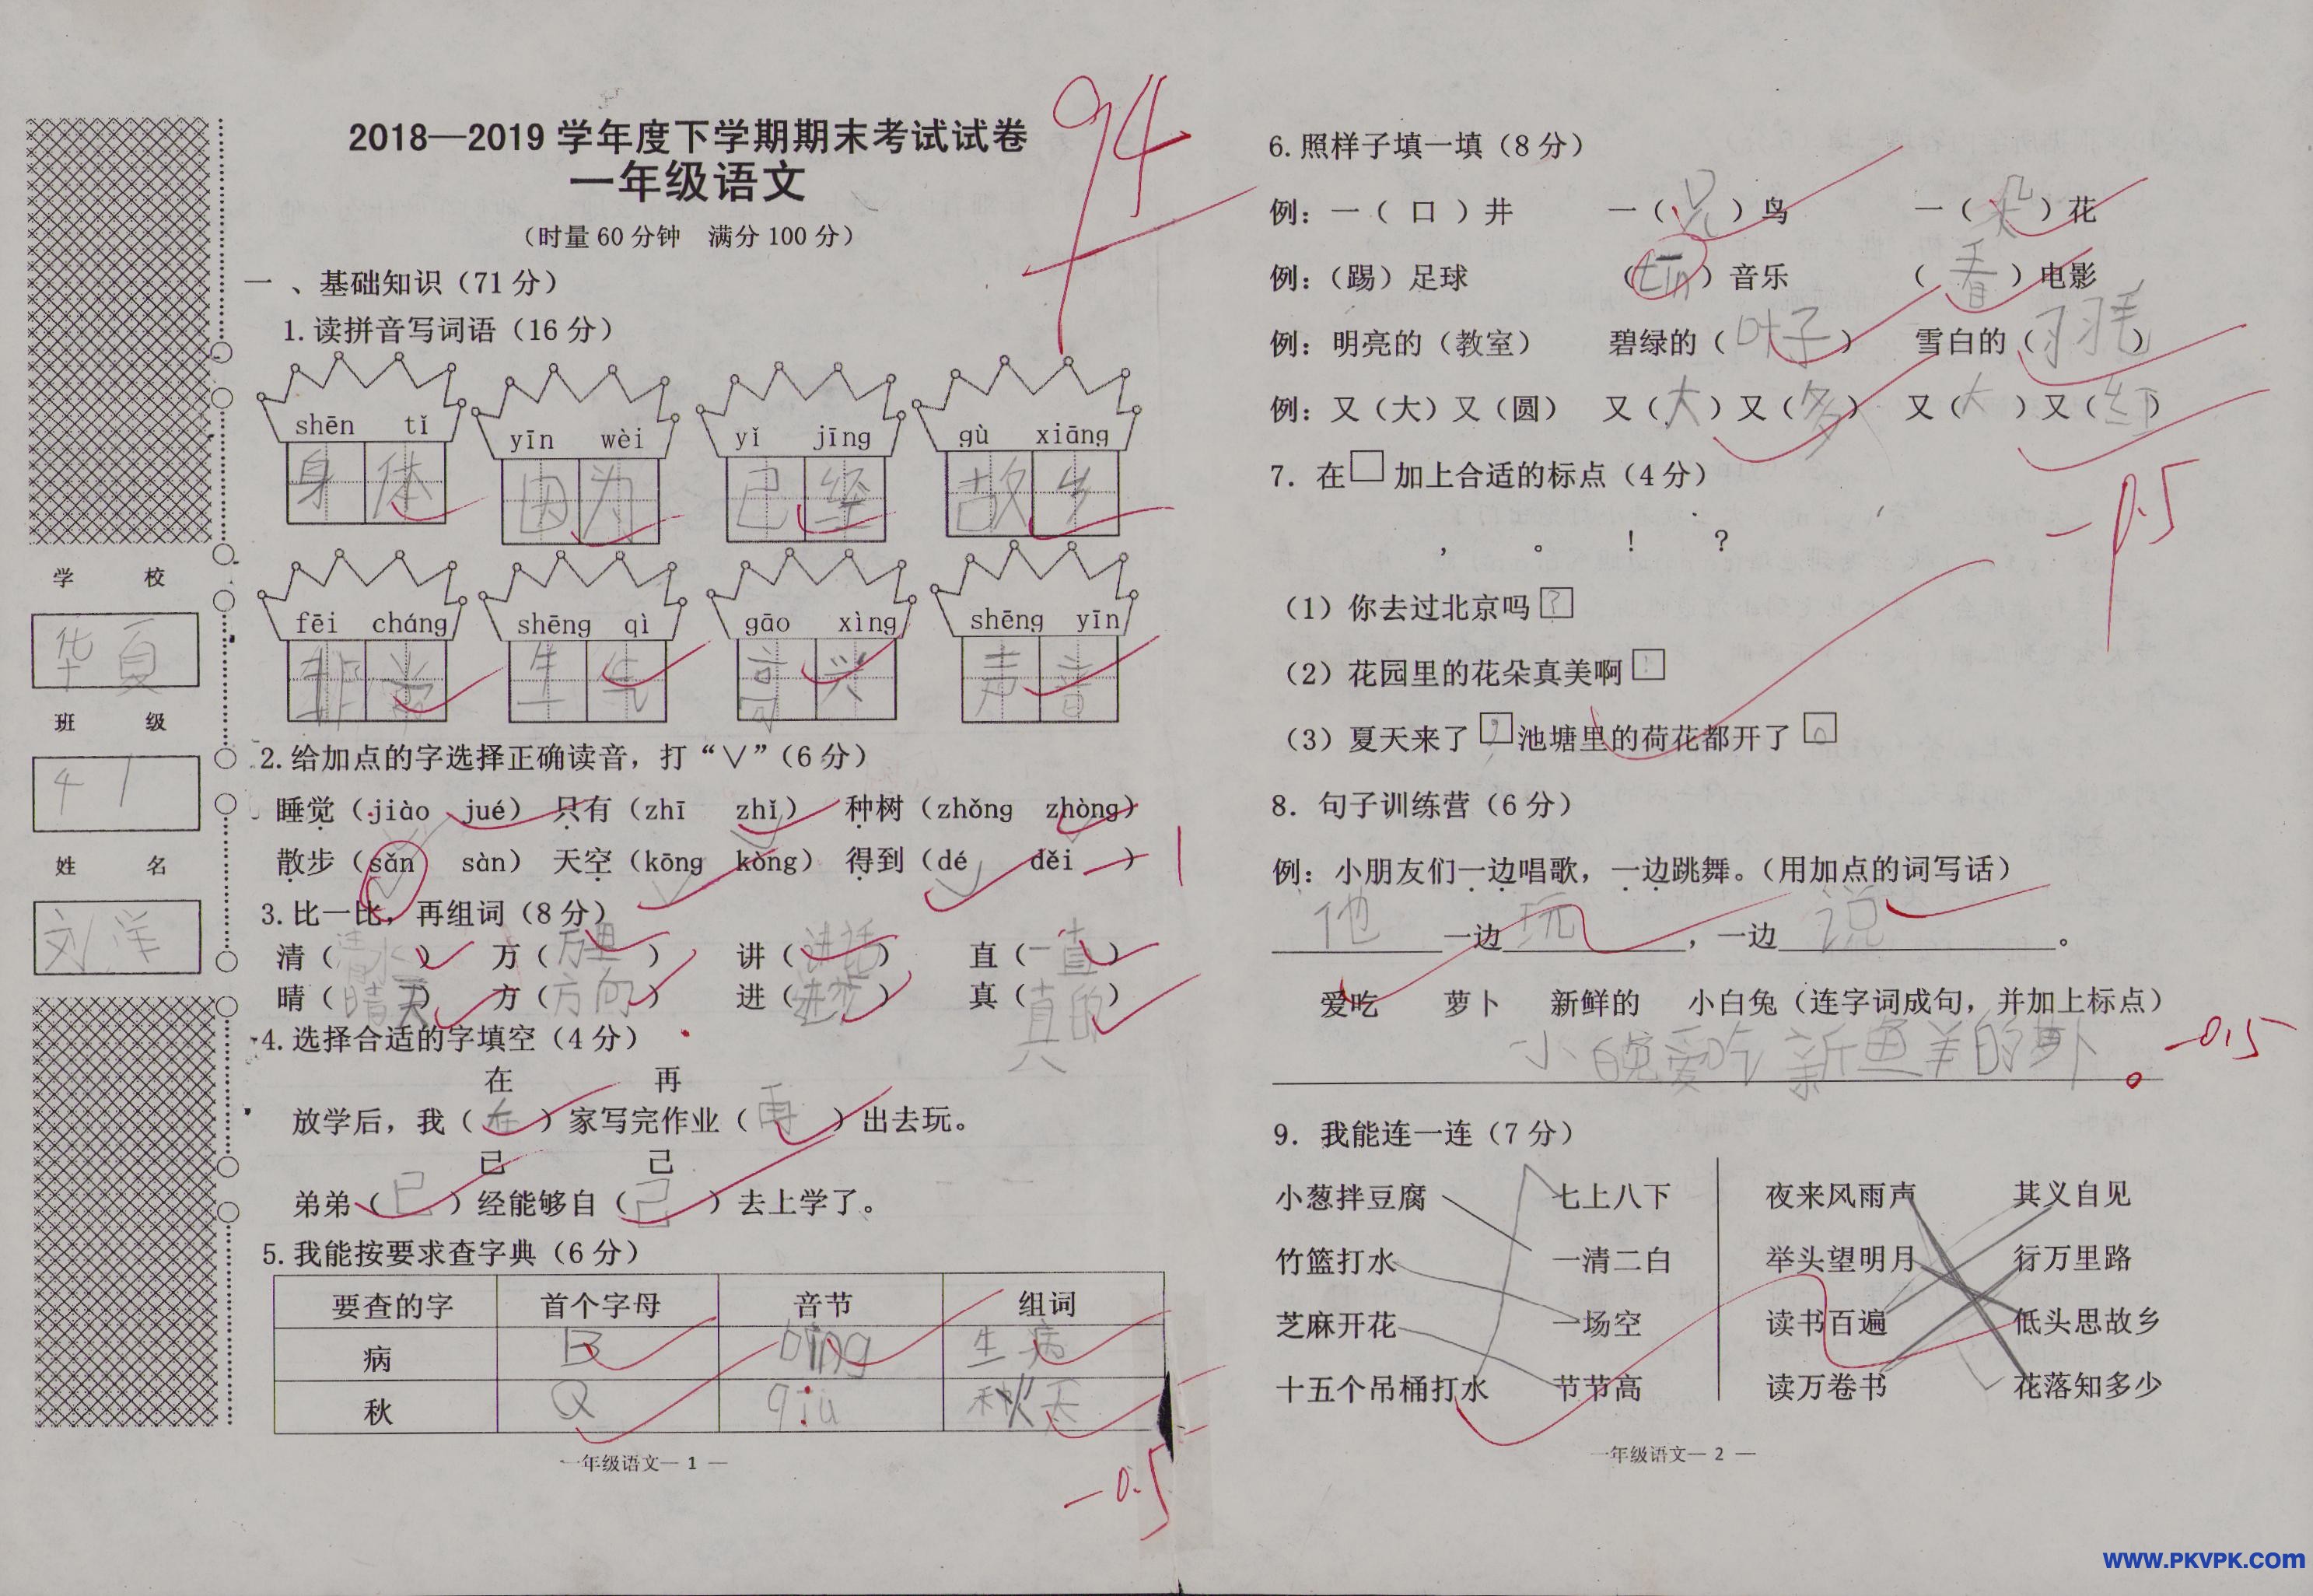 2018—2019 学年度下学期期末考试试卷
一年级语文
（时量 60 分钟 满分 100 分）
94
学 校
华夏
班 级
41
姓 名
刘洋
一、基础知识（71 分）
1.读拼音写词语（16 分）
shēn tǐ yīn wèi yǐ jīng gù xiāng
身体 因为 已经 故乡
fēi cháng shēng qì gāo xìng shēng yīn
非常 生气 高兴 声音
2.给加点的字选择正确读音，打“∨”（6 分）
睡觉（jiào jué） 只有（zhī zhǐ） 种树（zhǒng zhòng）
散步（sǎn sàn） 天空（kōng kòng） 得到（dé děi ）
3.比一比，再组词（8 分）
清（清水） 万（万里） 讲（讲话） 直（一直）
晴（晴天） 方（方向） 进（进步） 真（真的）
4.选择合适的字填空（4 分）
在 再
放学后，我（在）家写完作业（再）出去玩。
已 己
弟弟（已）经能够自（己）去上学了。
5.我能按要求查字典（6 分）
要查的字 首个字母 音节 组词
病 B bìng 生病
秋 Q qiu 秋天
-0.5
一年级语文— 1 —
6.照样子填一填（8 分）
例：一（ 口 ）井 一（只）鸟 一（朵）花
例：（踢）足球 （tīn）音乐 （看）电影
例：明亮的（教室） 碧绿的（叶子） 雪白的（羽毛）
例：又（大）又（圆） 又（大）又（多） 又（大）又（红）
-0.5
7. 在□加上合适的标点（4 分）
， 。 ！ ？
（1）你去过北京吗？
（2）花园里的花朵真美啊！
（3）夏天来了，池塘里的荷花都开了。
8. 句子训练营（6 分）
例：小朋友们一边唱歌，一边跳舞。（用加点的词写话）
他一边玩，一边说。
爱吃 萝卜 新鲜的 小白兔（连字词成句，并加上标点）
-0.5
9. 我能连一连（7 分）
小葱拌豆腐 七上八下 夜来风雨声 其义自见
竹篮打水 一清二白 举头望明月 行万里路
芝麻开花 一场空 读书百遍 低头思故乡
十五个吊桶打水 节节高 读万卷书 花落知多少
一年级语文— 2 —
www.PKVPK.com